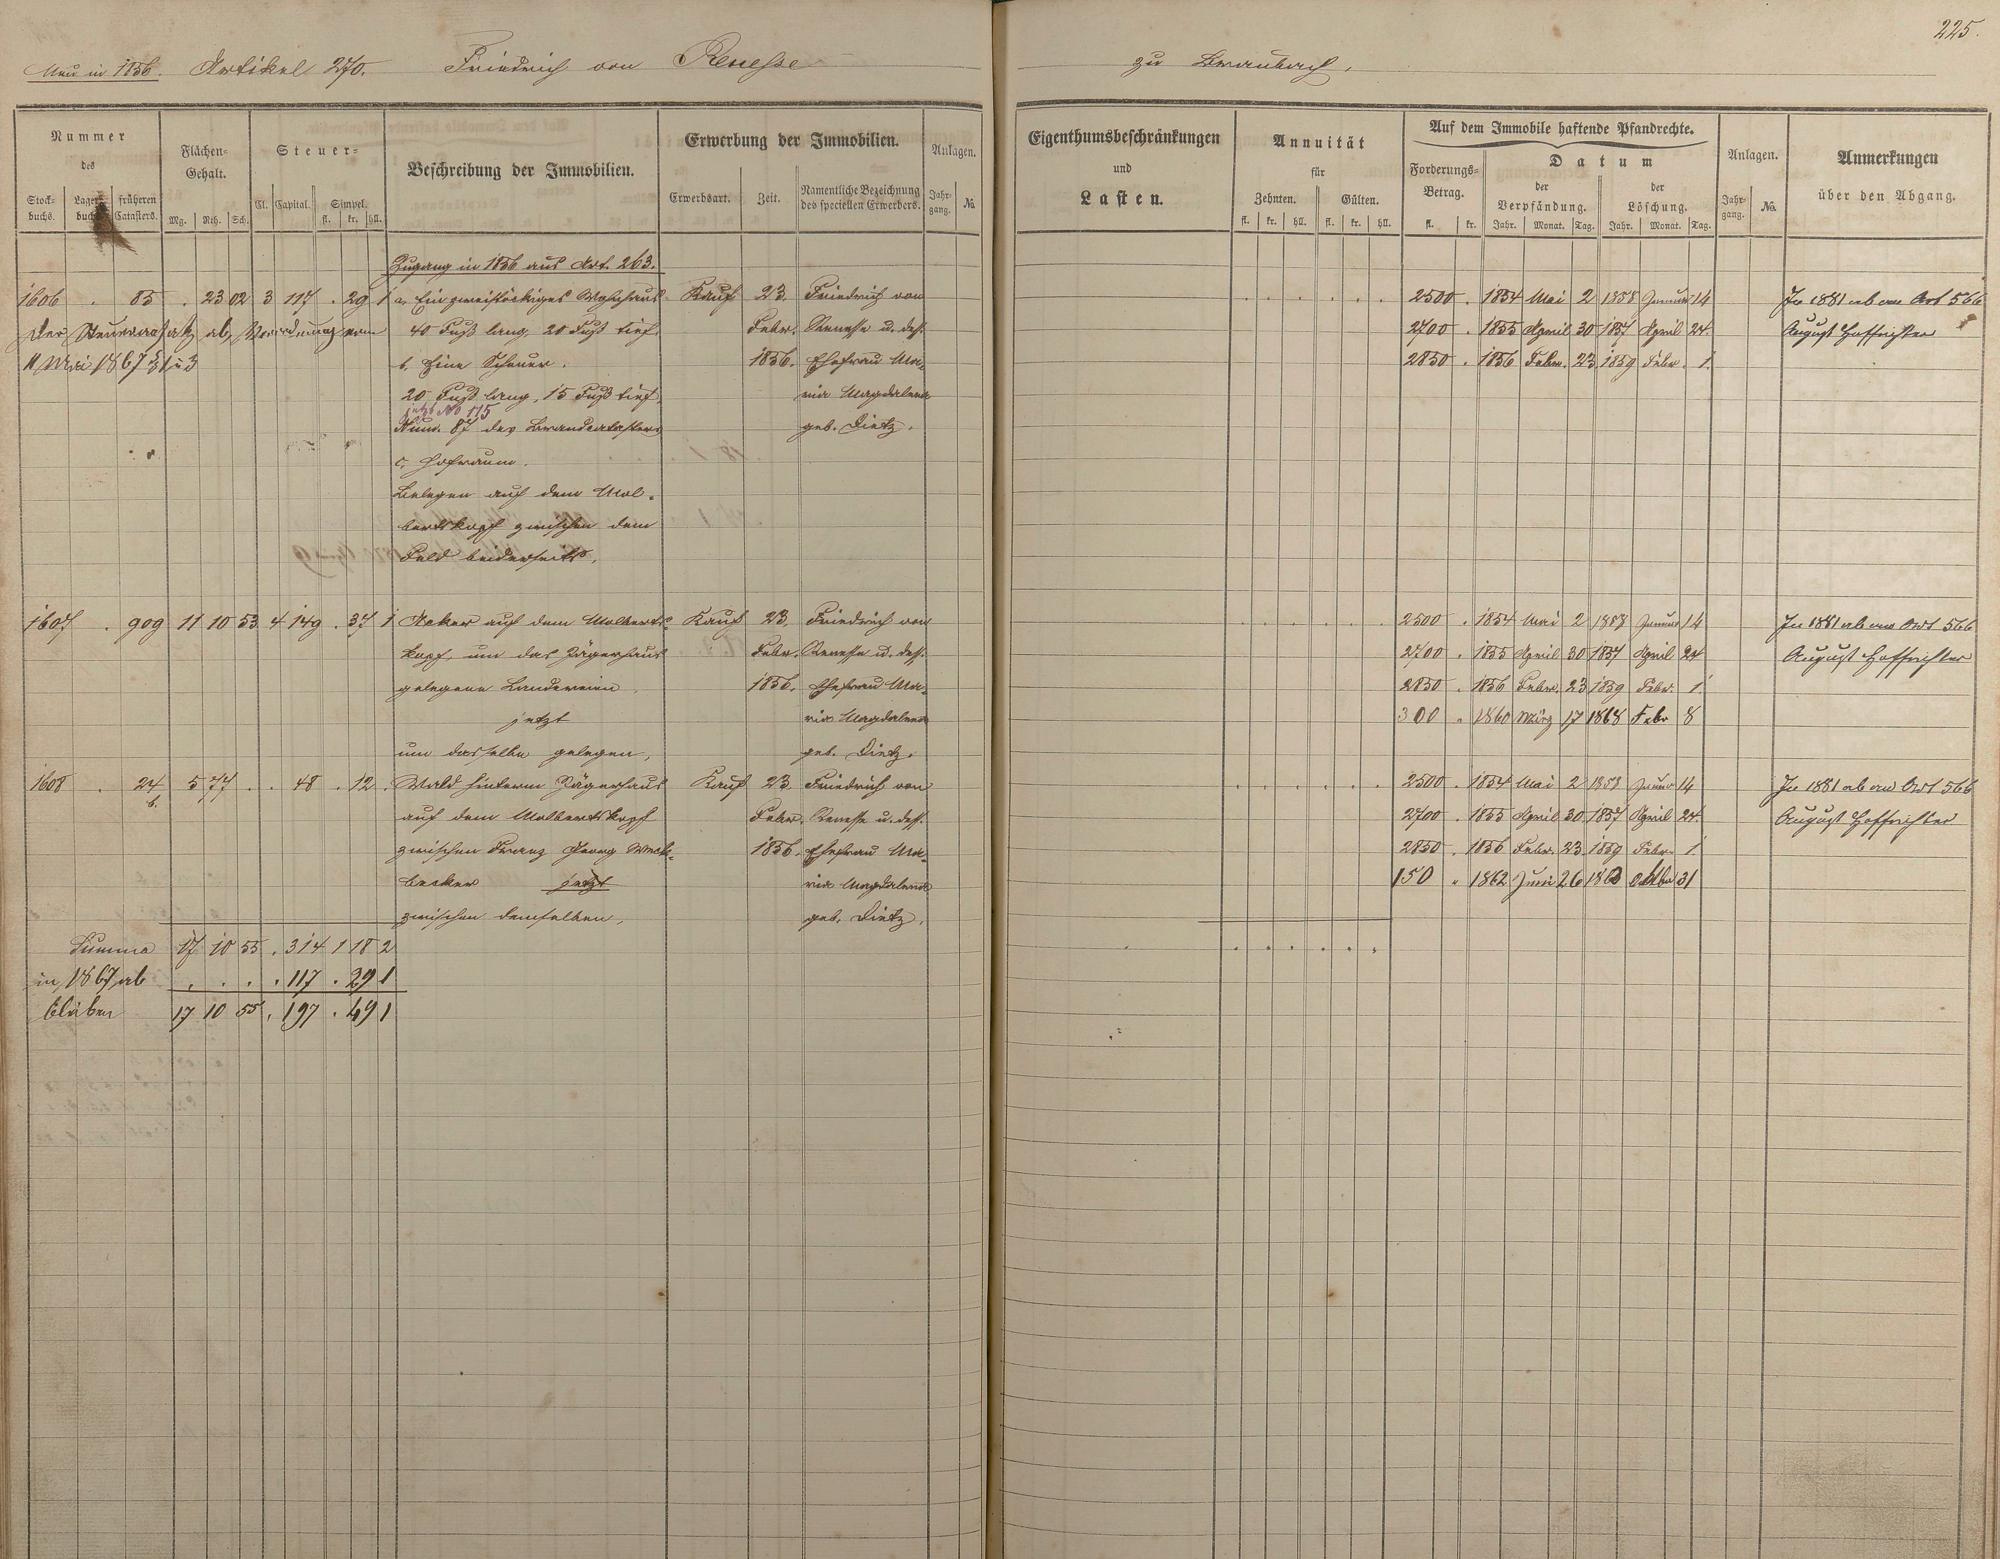 225.
Neu in 1856. Artikel 270. Friedrich von Renesse zu Braubach.
Nummer des
Stockbuchs. Lagerbuchs. früheren Catasters.
Flächen-Gehalt.
Mg. Rth. Sch.
Steuer-
Cl. Capital. Simpel.
fl. kr. hll.
Beschreibung der Immobilien.
Erwerbung der Immobilien.
Erwerbsart. Zeit. Namentliche Bezeichnung des speciellen Erwerbers.
Anlagen.
Jahrgang. No.
Eigenthumsbeschränkungen
und
Lasten.
Annuität
für
Zehnten. Gülten.
fl. kr. hll. fl. kr. hll.
Auf dem Immobile haftende Pfandrechte.
Forderungs-Betrag.
fl. kr.
Datum
der Verpfändung. der Löschung.
Jahr. Monat. Tag. Jahr. Monat. Tag.
Anlagen.
Jahrgang. No.
Anmerkungen
über den Abgang.
Zugang in 1856 aus Art. 263.
1606 . 85 . 23 02 3 117 . 29 1 a. Ein zweistöckiges Wohnhaus Kauf 23. Friedrich von
Der Steueransatz ab, Verordnung vom 40 Fuß lang, 20 Fuß tief. Febr. Renesse u. dess.
11 Mai 1867 § 1 u 3 b. Eine Scheuer. 1856. Ehefrau Ma-
20 Fuß lang, 15 Fuß tief, ria Magdalena
jetzt No 115
Num. 87 des Brandcatasters geb. Dietz.
c. Hofraum.
Belegen auf dem Mol-
bertskopf zwischen dem
Feld beiderseits.
2500 . 1854 Mai 2 1858 Januar 14 In 1881 ab an Art 566
2700 . 1855 April 30 1857 April 24. August Hoffrichter
2850 . 1856 Febr. 23 1859 Febr. 1.
1607. . 909 11 10 53 4 149 . 37 1 Acker auf dem Molberts- Kauf 23. Friedrich von
kopf, um das Jägerhaus Febr. Renesse u. dess.
gelegene Ländereien 1856. Ehefrau Ma-
jetzt ria Magdalena
um dasselbe gelegen, geb. Dietz.
2500 . 1854 Mai 2 1858 Januar 14 In 1881 ab an Art 566
2700 . 1855 April 30 1857 April 24 August Hoffrichter
2850 . 1856 Febr. 23 1859 Febr. 1.
300 " 1860 März 17 1868 Febr 8
1608 . 24 b. 5 77 . . 48 . 12 . Wald hinterm Jägerhaus Kauf 23. Friedrich von
auf dem Molbertskopf Febr. Renesse u. dess.
zwischen Franz Georg 1856. Ehefrau Ma-
becker jetzt ria Magdalena
zwischen demselben, geb. Dietz.
2500 . 1854 Mai 2 1858 Januar 14 In 1881 ab an Art 566
2700 . 1855 April 30 1857 April 24. August Hoffrichter
2850 . 1856 Febr. 23 1859 Febr. 1.
150 " 1862 Juni 26 31
Summa 17 10 55 . 314 1 18 2
in 1867 ab . . . . 117 . 29 1
bleiben 17 10 55 . 197 . 49 1